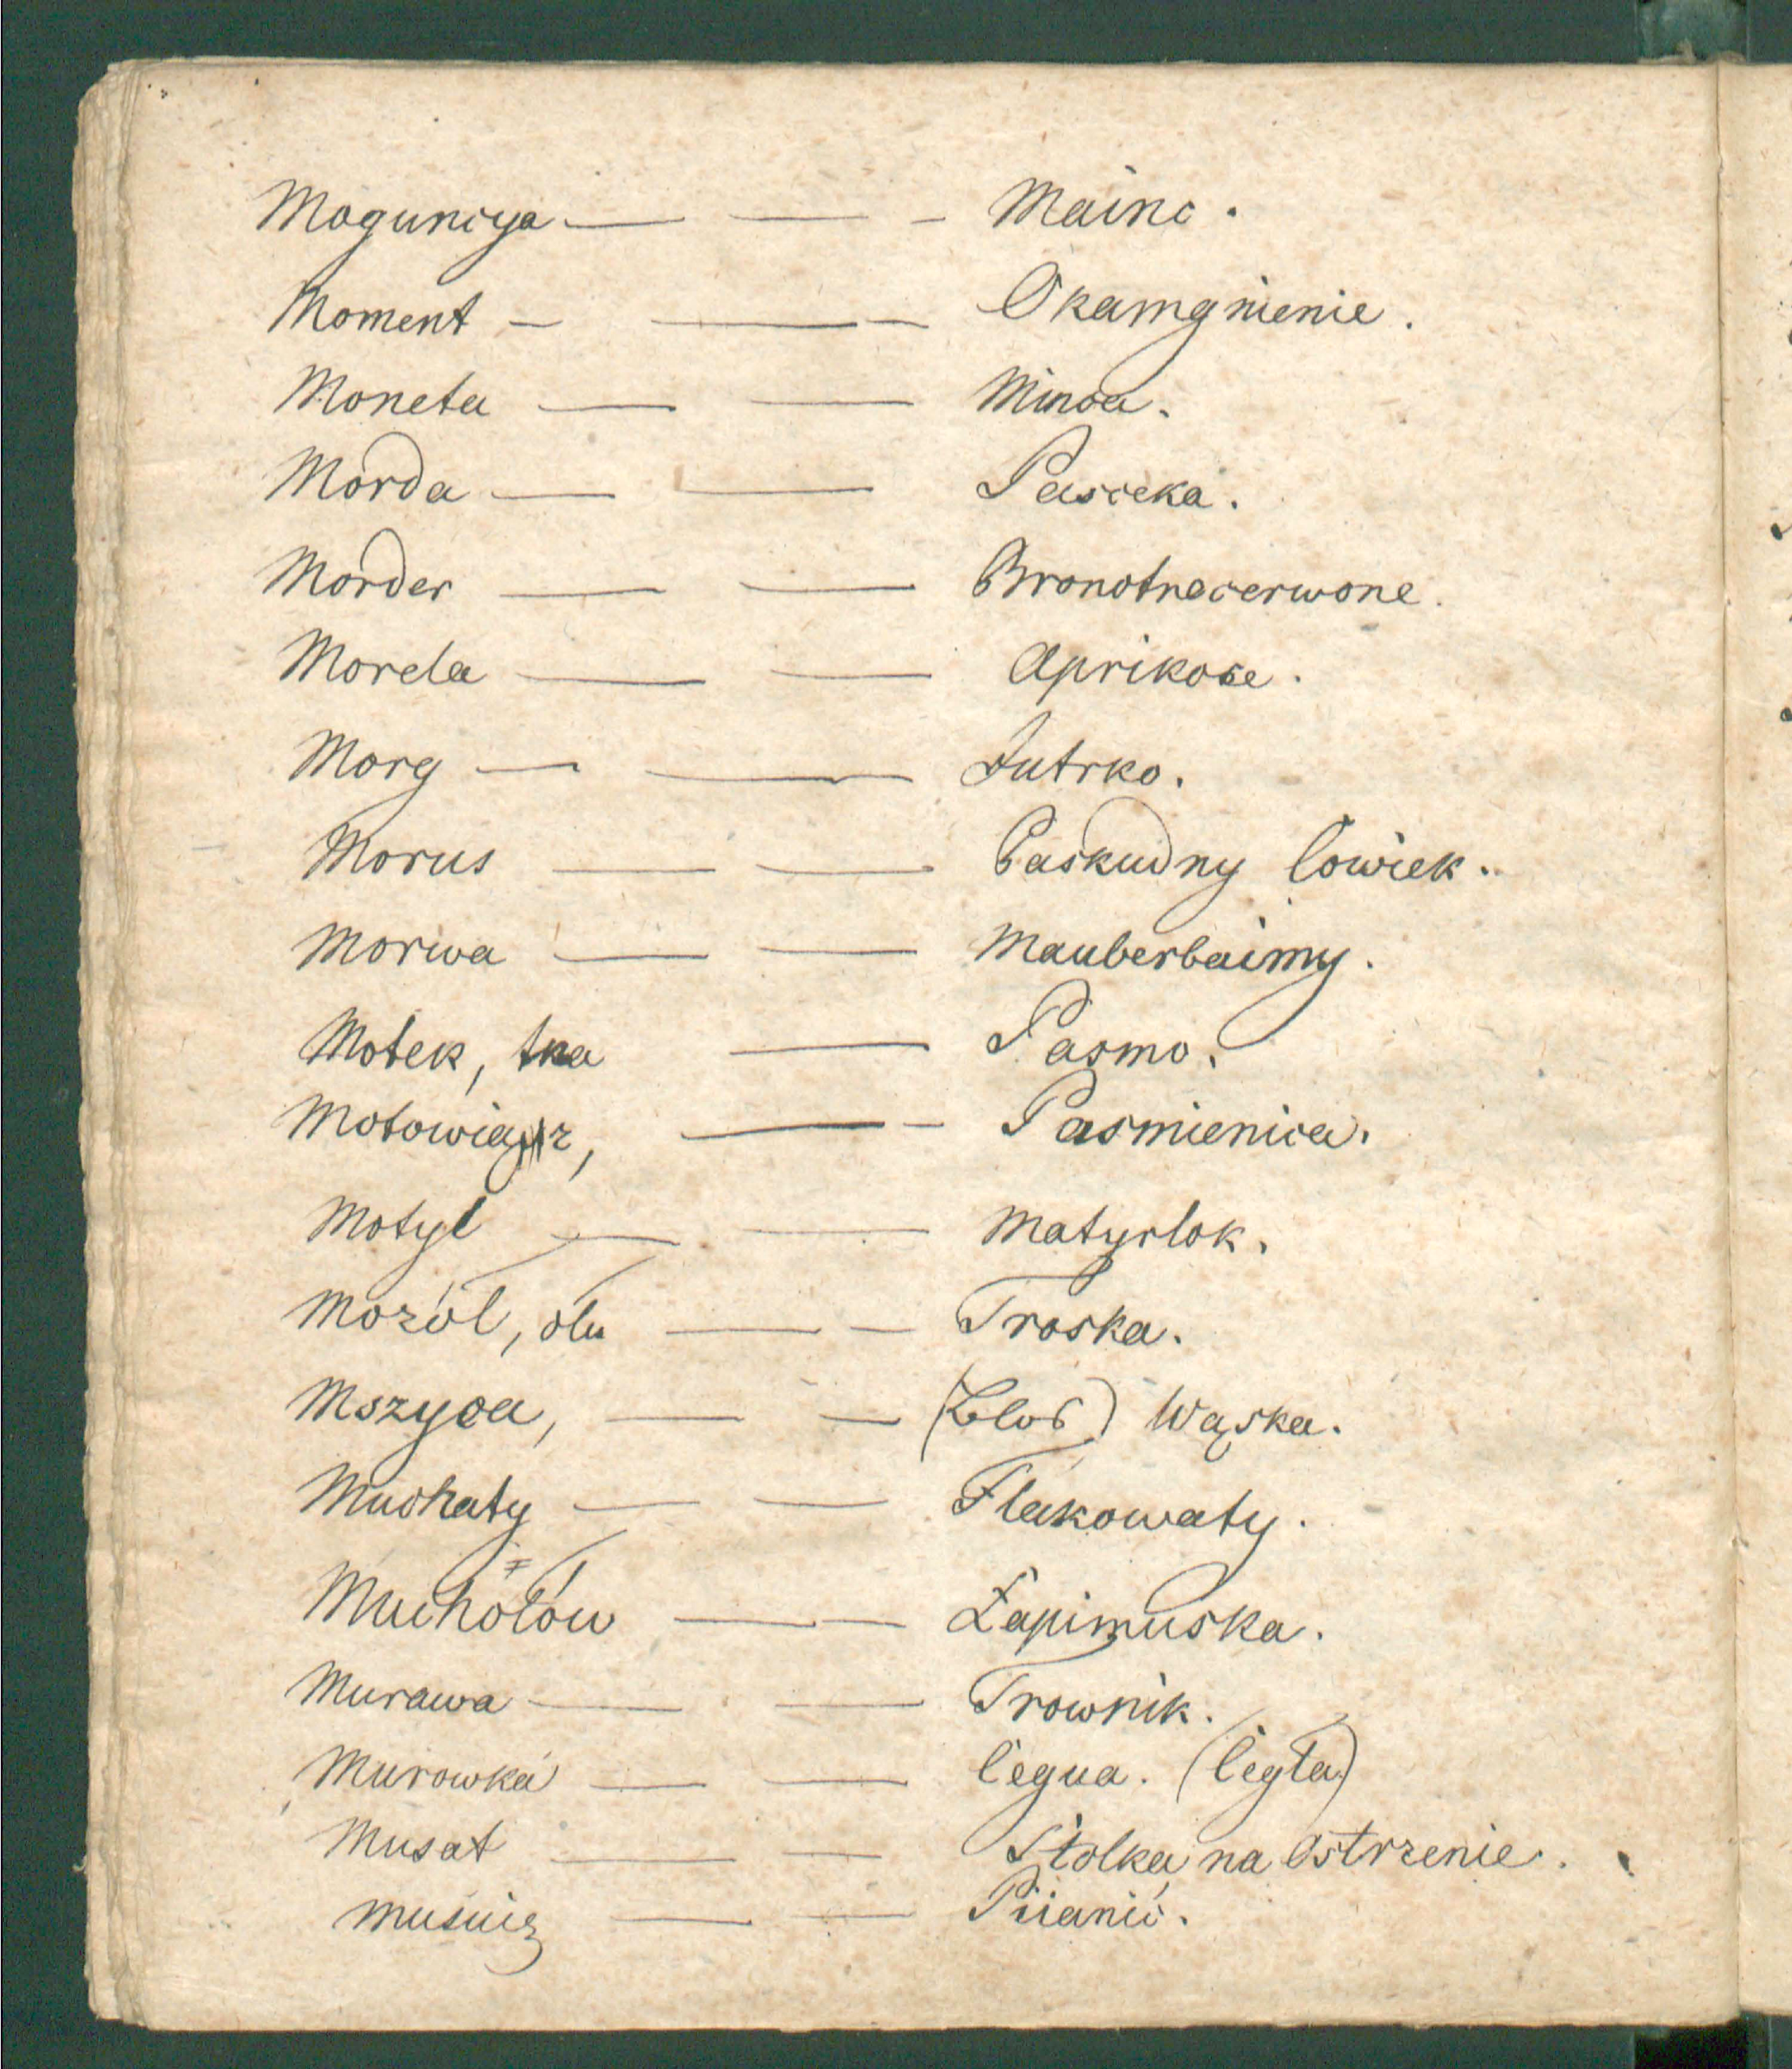 Moguncya — — – Mainc.
Moment – — – Okamgnienie.
Moneta — — Minca.
Morda — — Pasceka.
Morder — — Bronotnecerwone.
Morela — — Aprikose.
Morg — — Jutrko.
Morus — — Paskudny cowiek.
Morwa — — Mauberbaimy.
Motek, tka — Pasmo.
— – Pasmienica.
Motyl — — Matyrlok.
Mozól, olu — – Troska.
Mszyca, — – Wąska.
Muchaty — — Flakowaty.
Muchołów — — Łapimuska.
Murawa — — Trownik.
Murowka — — Cegua. (Cegła)
Musat — — Stolka na Ostrzenie.
— — Piianić.